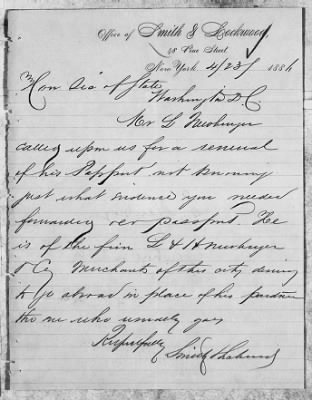 Office of Smith & Lockwood,
48 Pine Street
New York. 4/23/ 1886
Hon Sec of State
Washington D.C
Mr L
called upon us for a renewal
of his Passport not knowing
just what evidence you needed
forwarding passport. He
is of the firm L & H
& Co Merchants of this city desiring
to go abroad in place of his partner
the one who usually goes
Respectfully
Smith & Lockwood